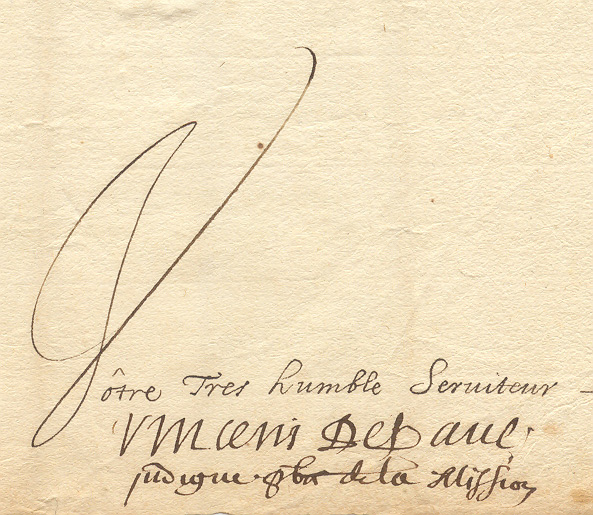 Vôtre Tres humble Seruiteur
Vincent Depaul
jndigne pbr͞e de la Mission